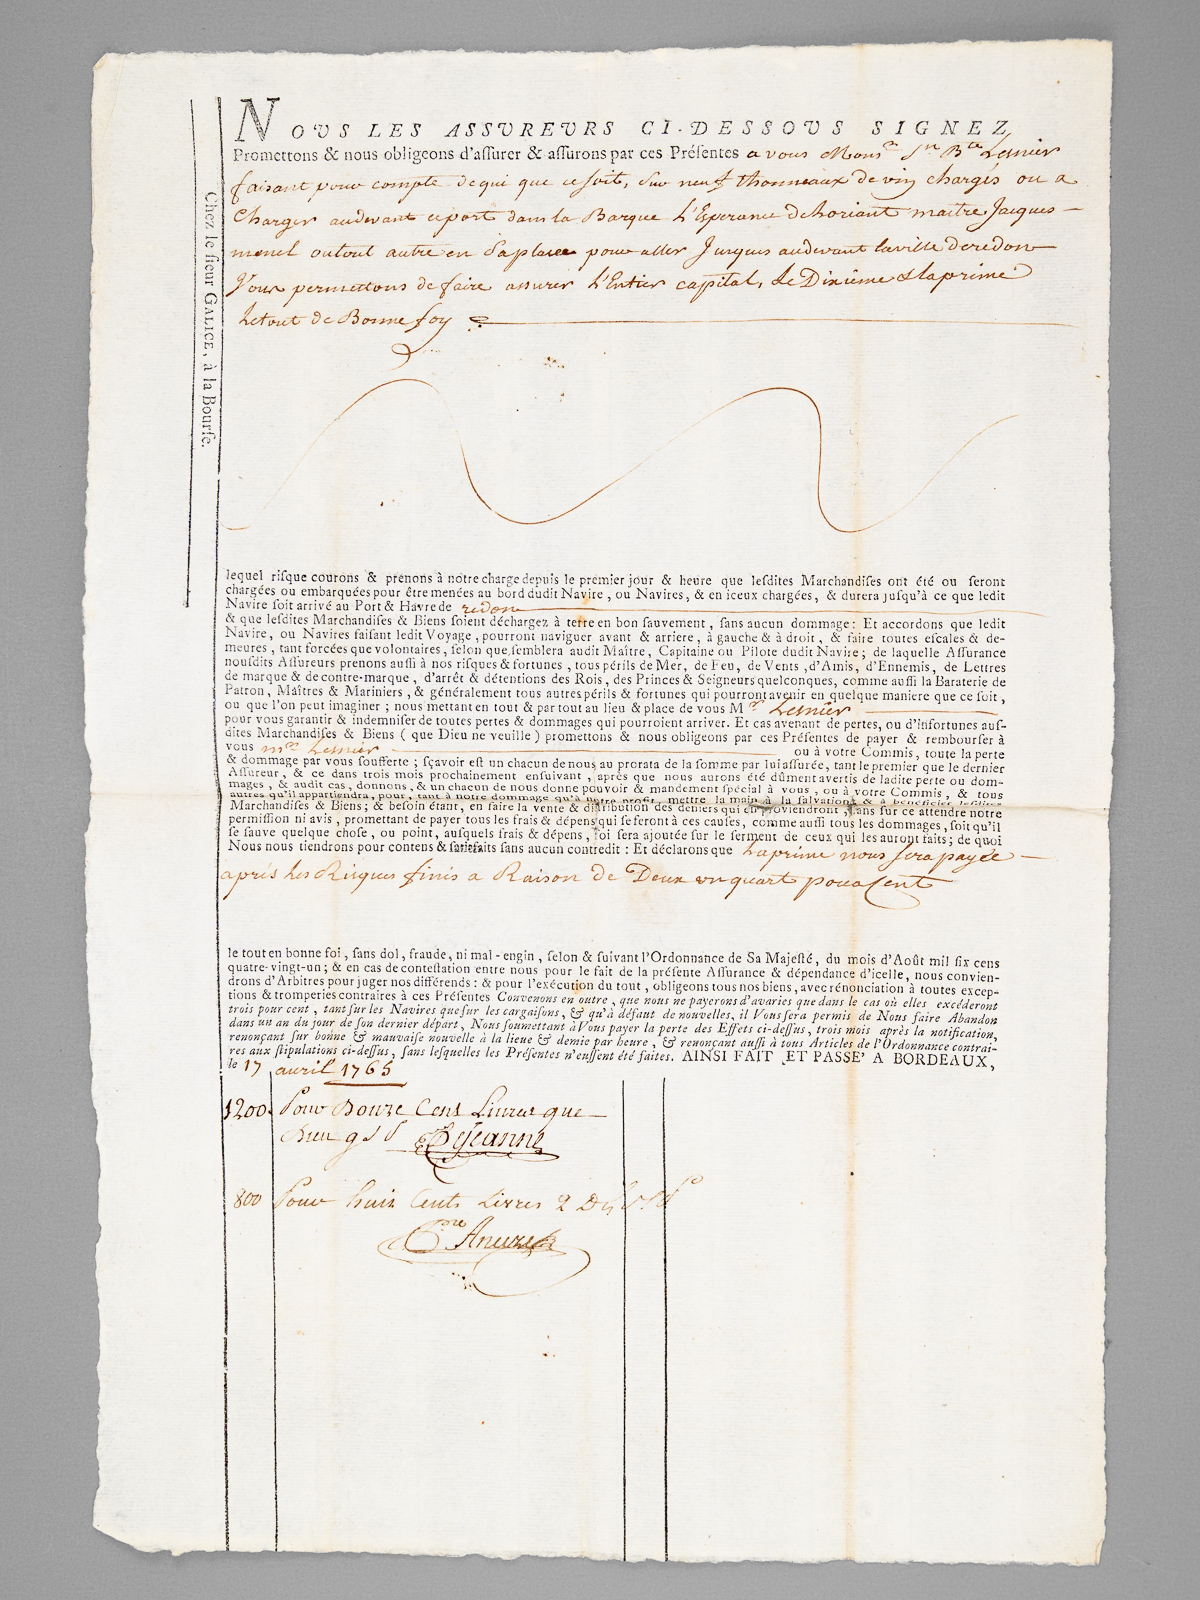 NOUS LES ASSUREURS CI-DESSOUS SIGNEZ
Promettons & nous obligeons d'assurer & assurons par ces Présentes a vous Monsr Jn Bte Lesnier
faisant pour compte de qui que ce soit, sur neuf thonneaux de vin chargés ou a
Charger audevant ce port dans la Barque L'Esperance de Loriant maitre Jacques
menel ou tout autre en sa place pour aller Jusques audevant la ville de redon
Vous permettons de faire assurer L'Entier capital, Le Dixieme & la prime
Le tout de Bonne foy
Chez le sieur GALICE, à la Bourse.
lequel risque courons & prenons à notre charge depuis le premier jour & heure que lesdites Marchandises ont été ou seront
chargées ou embarquées pour être menées au bord dudit Navire, ou Navires, & en iceux chargées, & durera jusqu'à ce que ledit
Navire soit arrivé au Port & Havre de redon
& que lesdites Marchandises & Biens soient déchargez à terre en bon sauvement, sans aucun dommage: Et accordons que ledit
Navire, ou Navires faisant ledit Voyage, pourront naviguer avant & arriere, à gauche & à droit, & faire toutes escales & de-
meures, tant forcées que volontaires, selon que semblera audit Maître, Capitaine ou Pilote dudit Navire; de laquelle Assurance
nousdits Assureurs prenons aussi à nos risques & fortunes, tous périls de Mer, de Feu, de Vents, d'Amis, d'Ennemis, de Lettres
de marque & de contre-marque, d'arrêt & détentions des Rois, des Princes & Seigneurs quelconques, comme aussi la Baraterie de
Patron, Maîtres & Mariniers, & généralement tous autres périls & fortunes qui pourront avenir en quelque maniere que ce soit,
ou que l'on peut imaginer; nous mettant en tout & par tout au lieu & place de vous Mr Lesnier
pour vous garantir & indemniser de toutes pertes & dommages qui pourroient arriver. Et cas avenant de pertes, ou d'infortunes aus-
dites Marchandises & Biens (que Dieu ne veuille) promettons & nous obligeons par ces Présentes de payer & rembourser à
vous mr Lesnier ou à votre Commis, toute la perte
& dommage par vous soufferte; sçavoir est un chacun de nous au prorata de la somme par lui assurée, tant le premier que le dernier
Assureur, & ce dans trois mois prochainement ensuivant, après que nous aurons été dûment avertis de ladite perte ou dom-
mages, & audit cas, donnons, & un chacun de nous donne pouvoir & mandement spécial à vous, ou à votre Commis, & tous
autres qu'il appartiendra, pour, tant à notre dommage qu'à notre profit, mettre la main à la salvation, & à bénéficier lesdites
Marchandises & Biens; & besoin étant, en faire la vente & distribution des deniers qui en proviendront, sans sur ce attendre notre
permission ni avis, promettant de payer tous les frais & dépens qui se feront à ces causes, comme aussi tous les dommages, soit qu'il
se sauve quelque chose, ou point, ausquels frais & dépens, foi sera ajoutée sur le serment de ceux qui les auront faits; de quoi
Nous nous tiendrons pour contens & satisfaits sans aucun contredit: Et déclarons que La prime nous sera payée
après les Risques finis a Raison de Deux un quart pour Cent
le tout en bonne foi, sans dol, fraude, ni mal-engin, selon & suivant l'Ordonnance de Sa Majesté, du mois d'Août mil six cens
quatre-vingt-un; & en cas de contestation entre nous pour le fait de la présente Assurance & dépendance d'icelle, nous convien-
drons d'Arbitres pour juger nos différends: & pour l'exécution du tout, obligeons tous nos biens, avec rénonciation à toutes excep-
tions & tromperies contraires à ces Présentes Convenons en outre, que nous ne payerons d'avaries que dans le cas où elles excéderont
trois pour cent, tant sur les Navires que sur les cargaisons, & qu'à défaut de nouvelles, il Vous sera permis de Nous faire Abandon
dans un an du jour de son dernier départ, Nous soumettant à Vous payer la perte des Effets ci-dessus, trois mois après la notification,
renonçant sur bonne & mauvaise nouvelle à la lieue & demie par heure, & renonçant aussi à tous Articles de l'Ordonnance contrai-
res aux stipulations ci-dessus, sans lesquelles les Présentes n'eussent été faites. AINSI FAIT ET PASSE' A BORDEAUX,
le 17 avril 1765
1200. Pour Douze Cens Livres que
Dieu
800 Pour huit Cents Livres